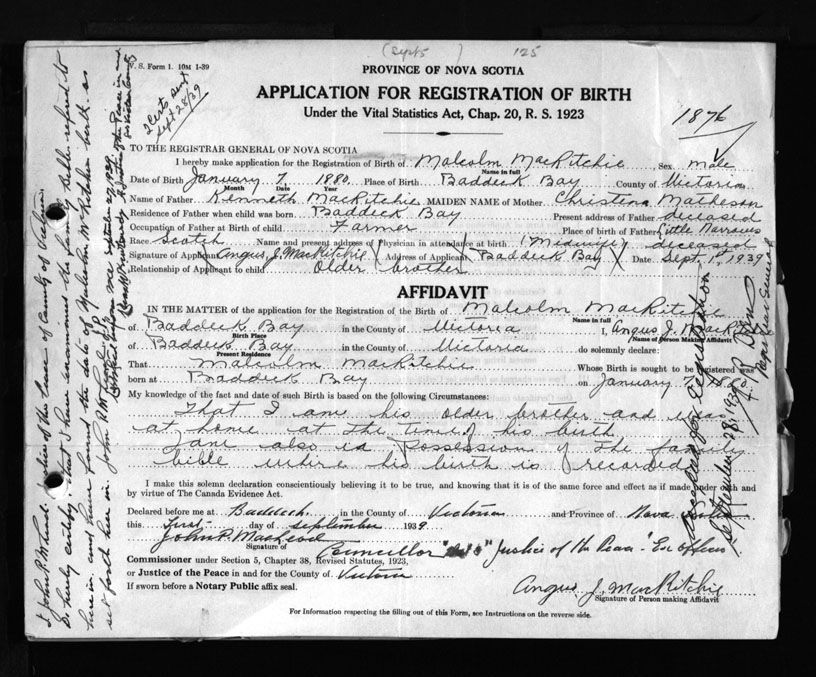 (Sept 5 ) 125
V. S. Form 1. 10M 1-39
2 Certs sent
Sept 28/39
PROVINCE OF NOVA SCOTIA
APPLICATION FOR REGISTRATION OF BIRTH
Under the Vital Statistics Act, Chap. 20, R. S. 1923
1876
TO THE REGISTRAR GENERAL OF NOVA SCOTIA
I hereby make application for the Registration of Birth of Malcolm MacRitchie Sex Male
Name in full
Date of Birth January 7, 1880. Place of Birth Baddeck Bay County of Victoria
Month Date Year
Name of Father Kenneth MacRitchie MAIDEN NAME of Mother Christena Matheson
Residence of Father when child was born Baddeck Bay Present address of Father deceased
Occupation of Father at Birth of child Farmer Place of birth of Father Little Narrows
Race Scotch Name and present address of Physician in attendance at birth (Midwife) deceased
Signature of Applicant Angus J. MacRitchie Address of Applicant Baddeck Bay Date Sept. 1st, 1939
Relationship of Applicant to child Older brother
AFFIDAVIT
IN THE MATTER of the application for the Registration of the Birth of Malcolm MacRitchie
Name in full
of Baddeck Bay in the County of Victoria I, Angus J. MacRitchie
Birth Place Name of Person Making Affidavit
of Baddeck Bay in the County of Victoria do solemnly declare:
Present Residence
That Malcolm MacRitchie Whose Birth is sought to be registered was
born at Baddeck Bay on January 7, 1880.
My knowledge of the fact and date of such Birth is based on the following Circumstances:
That I am his older brother and was
at home at the time of his birth
I am also in possession of the family
bible where his birth is recorded
I make this solemn declaration conscientiously believing it to be true, and knowing that it is of the same force and effect as if made under oath and
by virtue of The Canada Evidence Act.
Declared before me at Baddeck in the County of Victoria and Province of Nova Scotia
this First day of September 1939
John P. MacLeod
Signature of Councillor "Justice of the Peace" Ex Officio
Commissioner under Section 5, Chapter 38, Revised Statutes, 1923,
or Justice of the Peace in and for the County of Victoria
If sworn before a Notary Public affix seal.
Angus J. MacRitchie
Signature of Person making Affidavit
For Information respecting the filling out of this Form, see Instructions on the reverse side.
I John P. McLeod Justice of the Peace of County of Victoria
Do hereby certify that I have examined the family Bible refered to
herein and have found the date of Malcolm McRitchie birth as
set forth herein. John P. McLeod J.P.
Passed for registration
September 28, 1939
Registrar General